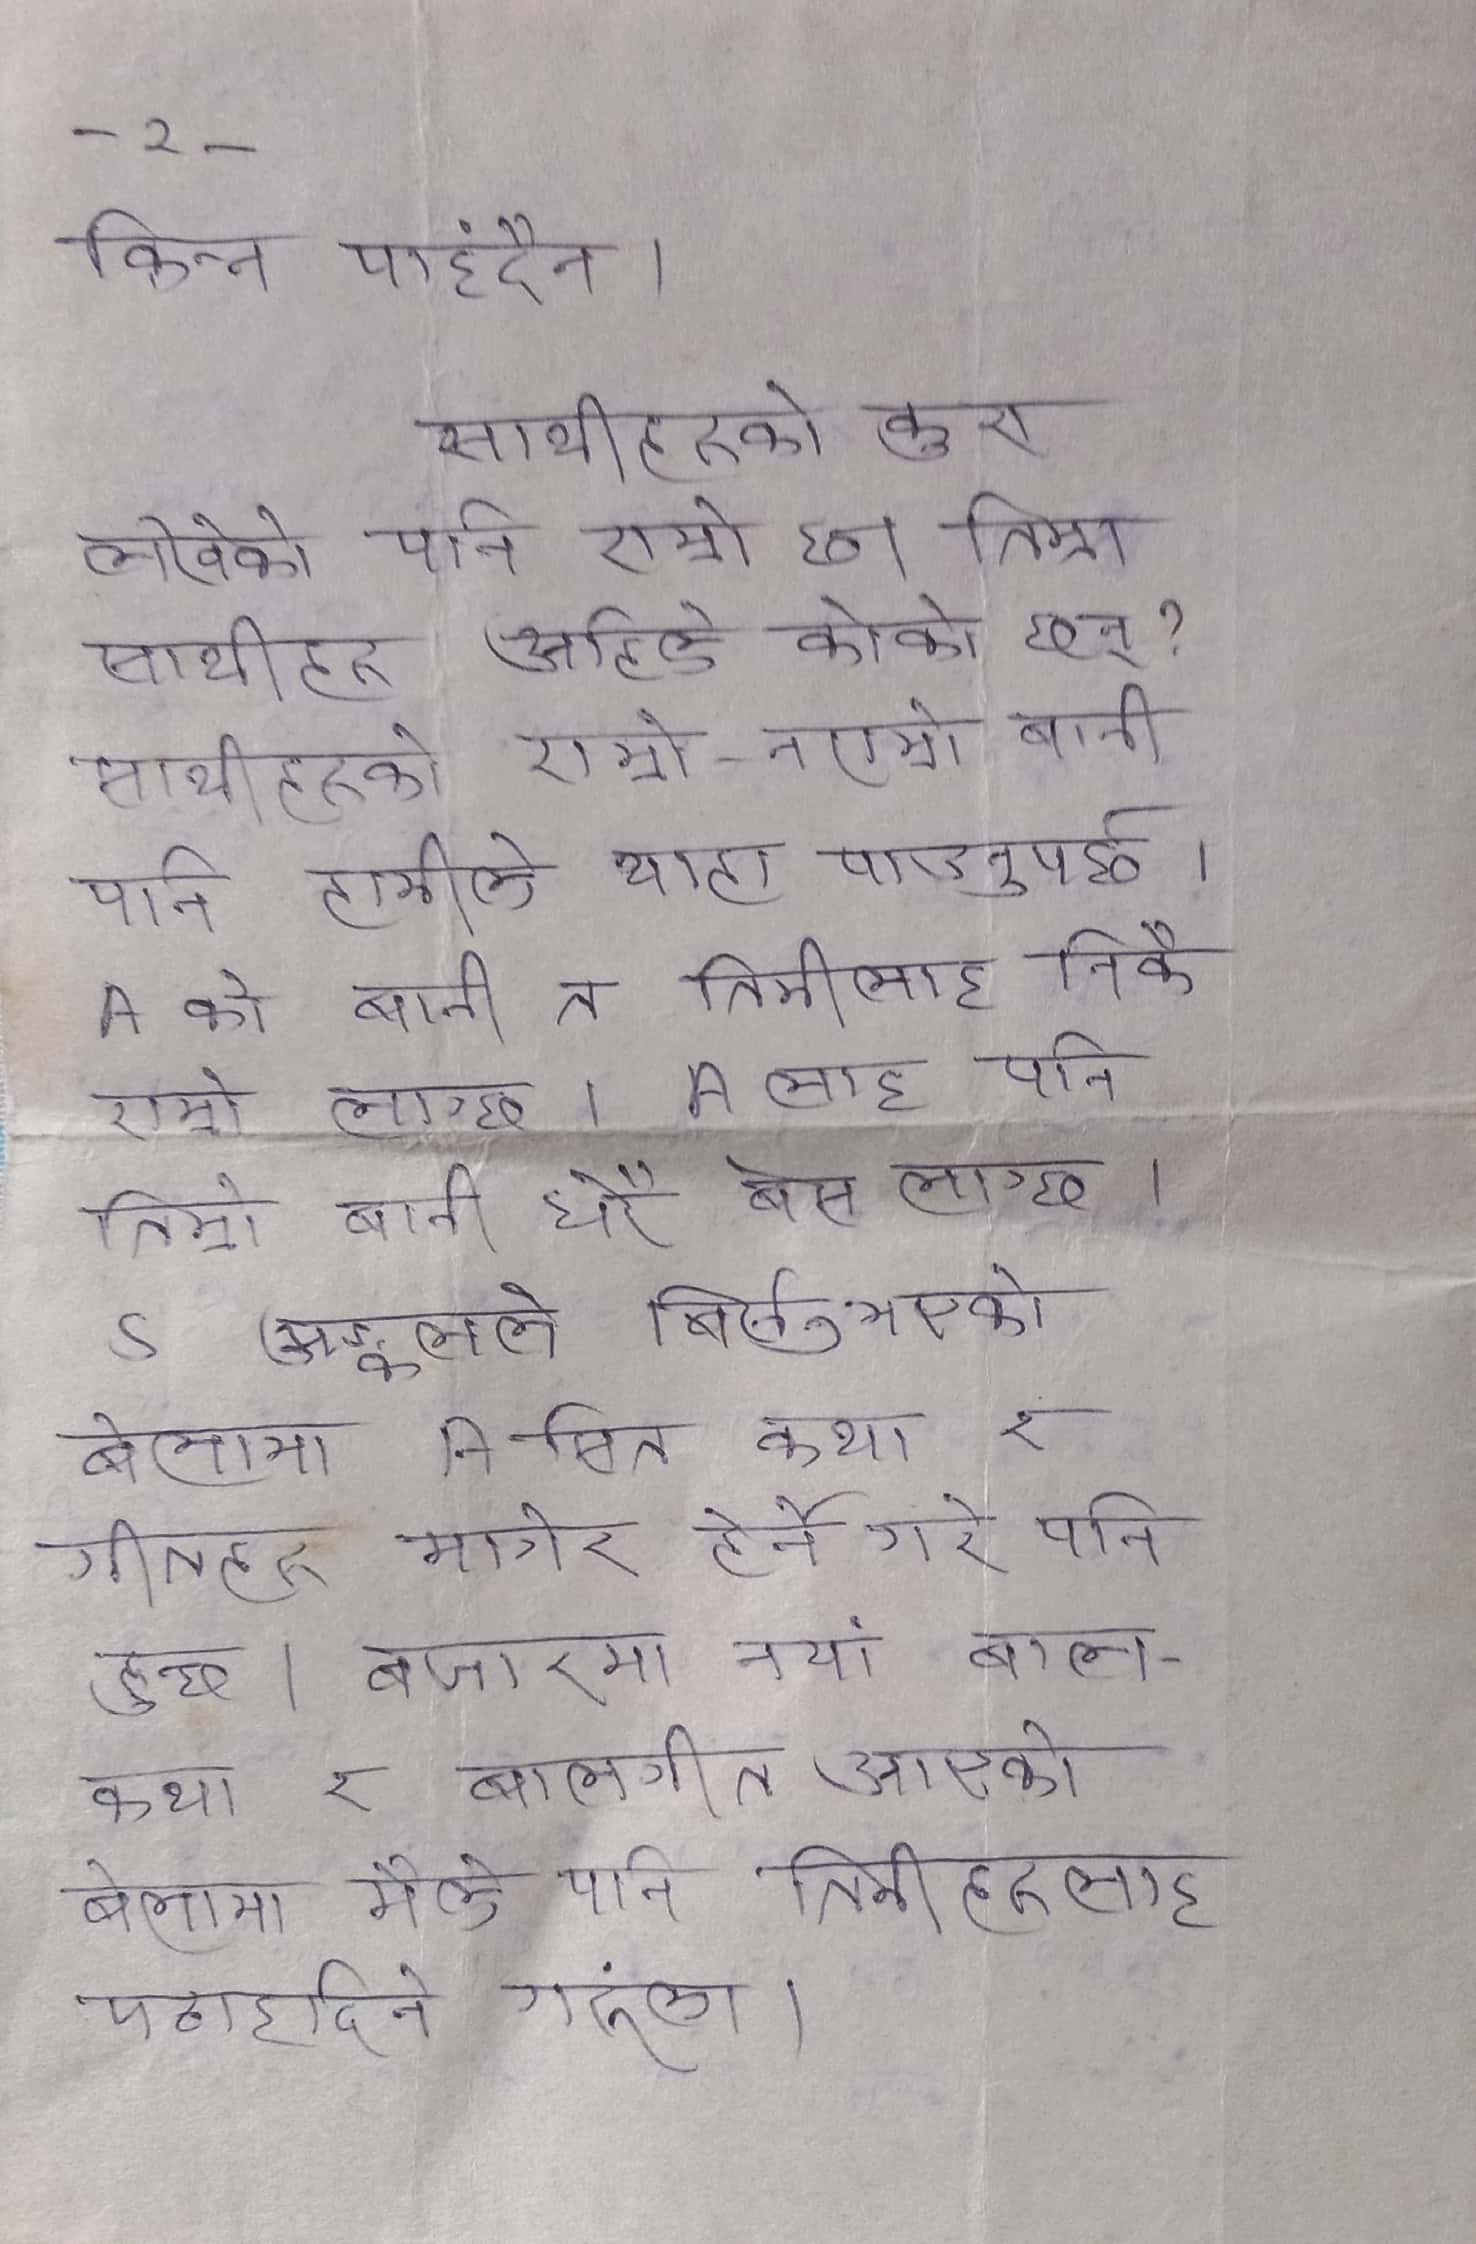 -२-
किन्न पाइंदैन ।
साथीहरूको कुरा
लेखेको पनि राम्रो छ। तिम्रा
साथीहरू अहिले कोको छन्?
साथीहरूको राम्रो-नराम्रो बानी
पनि हामीले थाहा पाउनुपर्छ ।
A को बानी त तिमीलाइ निकै
राम्रो लाग्छ । A लाइ पनि
तिम्रो बानी धेरै बेस लाग्छ ।
S अङ्कूलले बिर्सनुभएको
बेलामा A सित कथा र
गीतहरू मागेर हेर्ने गरे पनि
हुन्छ । बजारमा नयां बाल-
कथा र बालगीत आएको
बेलामा मैले पनि तिमीहरूलाइ
पठाइदिने गरूंला ।